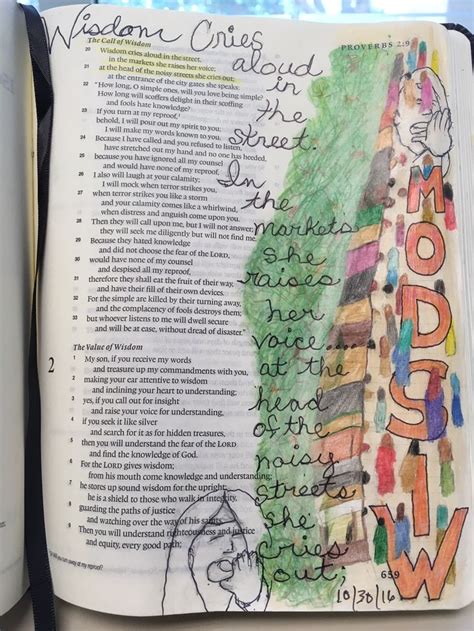 Wisdom Cries
aloud in
the
street.
In
the
markets
she
raises
her
voice.....
at the
head
of the
noisy
streets
she
cries
out;
10/30/16
WISDOM
PROVERBS 2:9
The Call of Wisdom
20 Wisdom cries aloud in the street,
in the markets she raises her voice;
21 at the head of the noisy streets she cries out;
at the entrance of the city gates she speaks:
22 "How long, O simple ones, will you love being simple?
How long will scoffers delight in their scoffing
and fools hate knowledge?
23 If you turn at my reproof,
behold, I will pour out my spirit to you;
I will make my words known to you.
24 Because I have called and you refused to listen,
have stretched out my hand and no one has heeded,
25 because you have ignored all my counsel
and would have none of my reproof,
26 I also will laugh at your calamity;
I will mock when terror strikes you,
27 when terror strikes you like a storm
and your calamity comes like a whirlwind,
when distress and anguish come upon you.
28 Then they will call upon me, but I will not answer;
they will seek me diligently but will not find me.
29 Because they hated knowledge
and did not choose the fear of the LORD,
30 would have none of my counsel
and despised all my reproof,
31 therefore they shall eat the fruit of their way,
and have their fill of their own devices.
32 For the simple are killed by their turning away,
and the complacency of fools destroys them;
33 but whoever listens to me will dwell secure
and will be at ease, without dread of disaster."
The Value of Wisdom
2
1 My son, if you receive my words
and treasure up my commandments with you,
2 making your ear attentive to wisdom
and inclining your heart to understanding;
3 yes, if you call out for insight
and raise your voice for understanding,
4 if you seek it like silver
and search for it as for hidden treasures,
5 then you will understand the fear of the LORD
and find the knowledge of God.
6 For the LORD gives wisdom;
from his mouth come knowledge and understanding;
7 he stores up sound wisdom for the upright;
he is a shield to those who walk in integrity,
8 guarding the paths of justice
and watching over the way of his saints.
9 Then you will understand righteousness and justice
and equity, every good path;
away at my reproof?
659